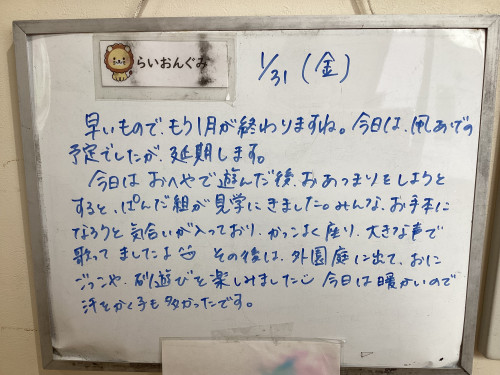 らいおんぐみ
1/31 (金)
早いもので、もう1月が終わりますね。今日は、凧あげの
予定でしたが、延期します。
今日は おへやで遊んだ後、おあつまりをしようと
すると、ぱんだ組が見学にきました。みんな、お手本に
なろうと気合いが入っており、かっこよく座り、大きな声で
歌って ましたよ その後は、外園庭に出て、おに
ごっこや、砂遊びを楽しみました 今日は暖かいので
汗をかく子も多かったです。